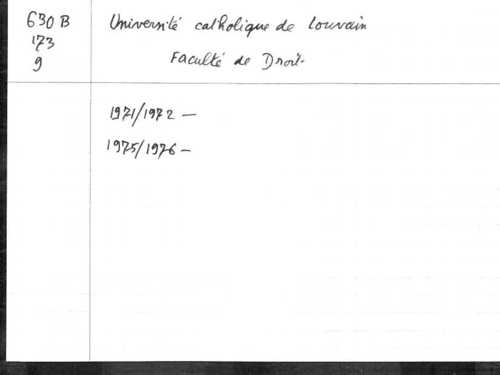 630 B
173
9
Université catholique de Louvain
Faculté de Droit.
1971/1972 —
1975/1976 —